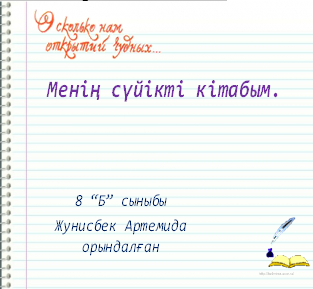 О сколько нам
открытий чудных...
Менің сүйікті кітабым.
8 “Б” сыныбы
Жунисбек Артемида
орындалған